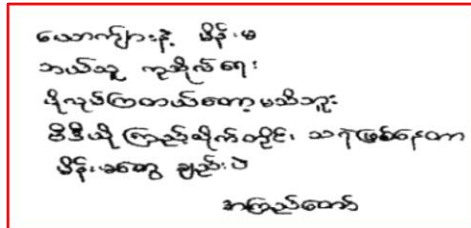 ယောက်ျားနဲ့ မိန်းမ
ဘယ်သူ ကုသိုလ်ရေး
ပိုလုပ်ကြတယ်တော့ မသိဘူး
ဗီဒီယို ကြည့်လိုက်တိုင်း သရဲဖြစ်နေတာ
မိန်းမတွေ ချည်းပဲ
အကြည်တော်